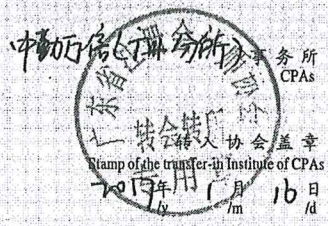 中勤万信(深圳分所)事务所
CPAs
广东省注册会计师协会
转会转所
专用
转入协会盖章
Stamp of the transfer-in Institute of CPAs
2019年 1月 16日
/y /m /d